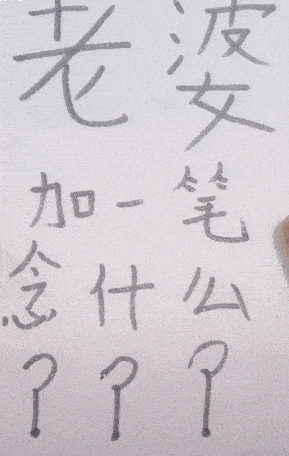 老婆
加一笔
念什么
？？？